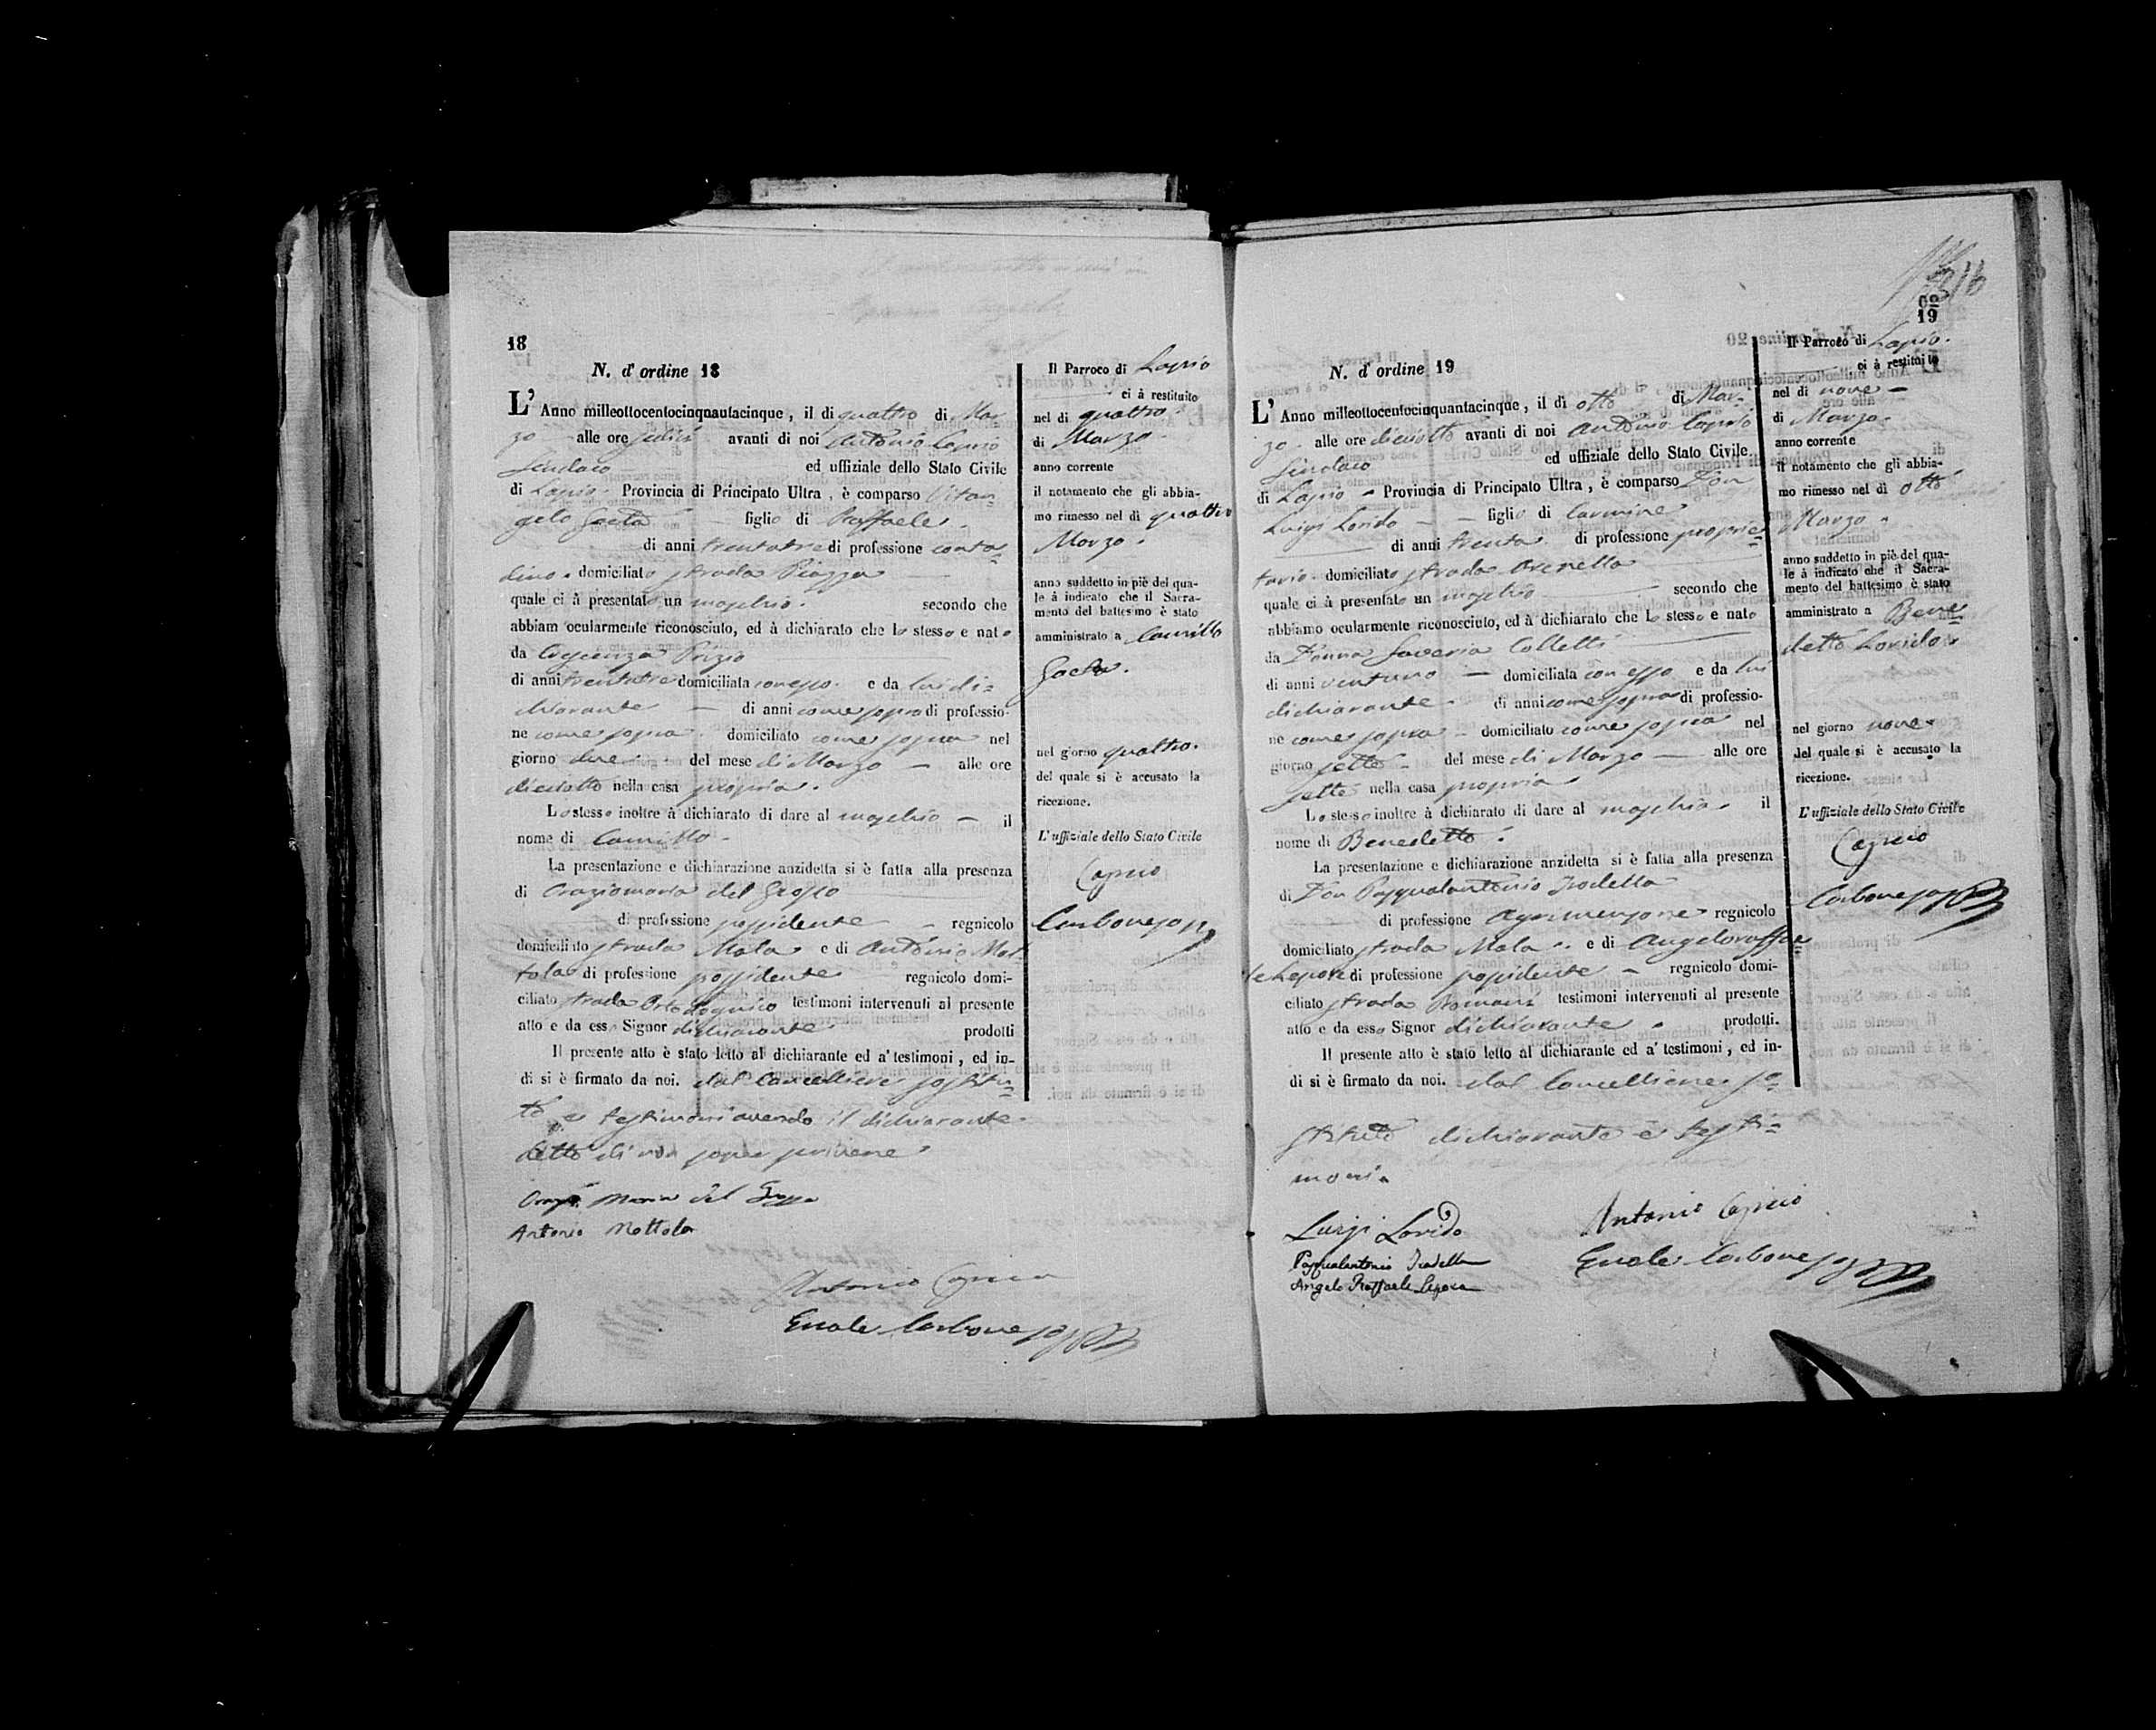 18
N. d' ordine 18
L' Anno milleottocentocinquantacinque, il di quattro di Mar
zo alle ore sedici avanti di noi Antonio Caprio
Sindaco ed uffiziale dello Stato Civile
di Lapio. Provincia di Principato Ultra, è comparso Vitan
gelo Gaeta figlio di Raffaele.
di anni trentatre di professione conta=
dino. domiciliato strada Piazza
quale ci à presentato un maschio. secondo che
abbiam ocularmente riconosciuto, ed à dichiarato che lo stesso e nato
da Crescenza Prizio
di anni trentatre domiciliata con esso. e da lui di=
chiarante di anni come sopra di professio-
ne come sopra. domiciliato come sopra nel
giorno due. del mese di Marzo alle ore
dieciotto nella casa propria.
Lo stesso inoltre à dichiarato di dare al maschio il
nome di Camillo.
La presentazione e dichiarazione anzidetta si è fatta alla presenza
di Oraziomaria del Grosso
di professione possidente regnicolo
domiciliato strada Mala e di Antonio Mot
tola di professione possidente regnicolo domi-
ciliato strada testimoni intervenuti al presente
atto e da esso Signor dichiarante prodotti
Il presente atto è stato letto al dichiarante ed a' testimoni, ed in-
di si è firmato da noi. dal Cancelliere sostitu=
to e testimoni avendo il dichiarante
detto di non saper scrivere
Orazio Maria del Grosso
Antonio Mottola
Antonio Caprio
Carbone sost
Il Parroco di Lapio
ci à restituito
nel di quattro.
di Marzo.
anno corrente
il notamento che gli abbia-
mo rimesso nel di quattro
Marzo.
anno suddetto in piè del qua-
le à indicato che il Sacra-
mento del battesimo è stato
amministrato a Camillo
Gaeta.
nel giorno quattro.
del quale si è accusato la
ricezione.
L'uffiziale dello Stato Civile
Caprio
Carbone sost
19
N. d' ordine 19
L' Anno milleottocentocinquantacinque, il di otto di Mar=
zo. alle ore dieciotto avanti di noi Antonio Caprio
Sindaco ed uffiziale dello Stato Civile
di Lapio Provincia di Principato Ultra, è comparso Don
Luigi Lorido figlio di Carmine
di anni trenta di professione proprie=
tario. domiciliato strada Arenella
quale ci à presentato un maschio secondo che
abbiamo ocularmente riconosciuto, ed à dichiarato che lo stesso e nato
da Donna Saveria Colletti
di anni ventuno domiciliata con esso e da lui
dichiarante. di anni come sopra di professio-
ne come sopra domiciliato come sopra nel
giorno sette del mese di Marzo alle ore
sette nella casa propria
Lo stesso inoltre à dichiarato di dare al maschio il
nome di Benedetto.
La presentazione e dichiarazione anzidetta si è fatta alla presenza
di Don Pasqualantonio Iradella
di professione agrimensore regnicolo
domiciliato strada Mala. e di Angeloraffae=
le Lepore di professione possidente regnicolo domi-
ciliato strada Romani testimoni intervenuti al presente
atto e da esso Signor dichiarante prodotti.
Il presente atto è stato letto al dichiarante ed a' testimoni, ed in-
di si è firmato da noi. dal Cancelliere so=
stituto dichiarante e testi=
moni.
Luigi Lorido
Antonio Caprio
Pasqualantonio Iradella
Carbone sost
Angelo Raffaele Lepore
Il Parroco di Lapio.
ci à restituito
nel di nove
di Marzo.
anno corrente
il notamento che gli abbia-
mo rimesso nel di otto
Marzo.
anno suddetto in piè del qua-
le à indicato che il Sacra-
mento del battesimo è stato
amministrato a Bene=
detto Lorido.
nel giorno nove.
del quale si è accusato la
ricezione.
L'uffiziale dello Stato Civile
Caprio
Carbone sost